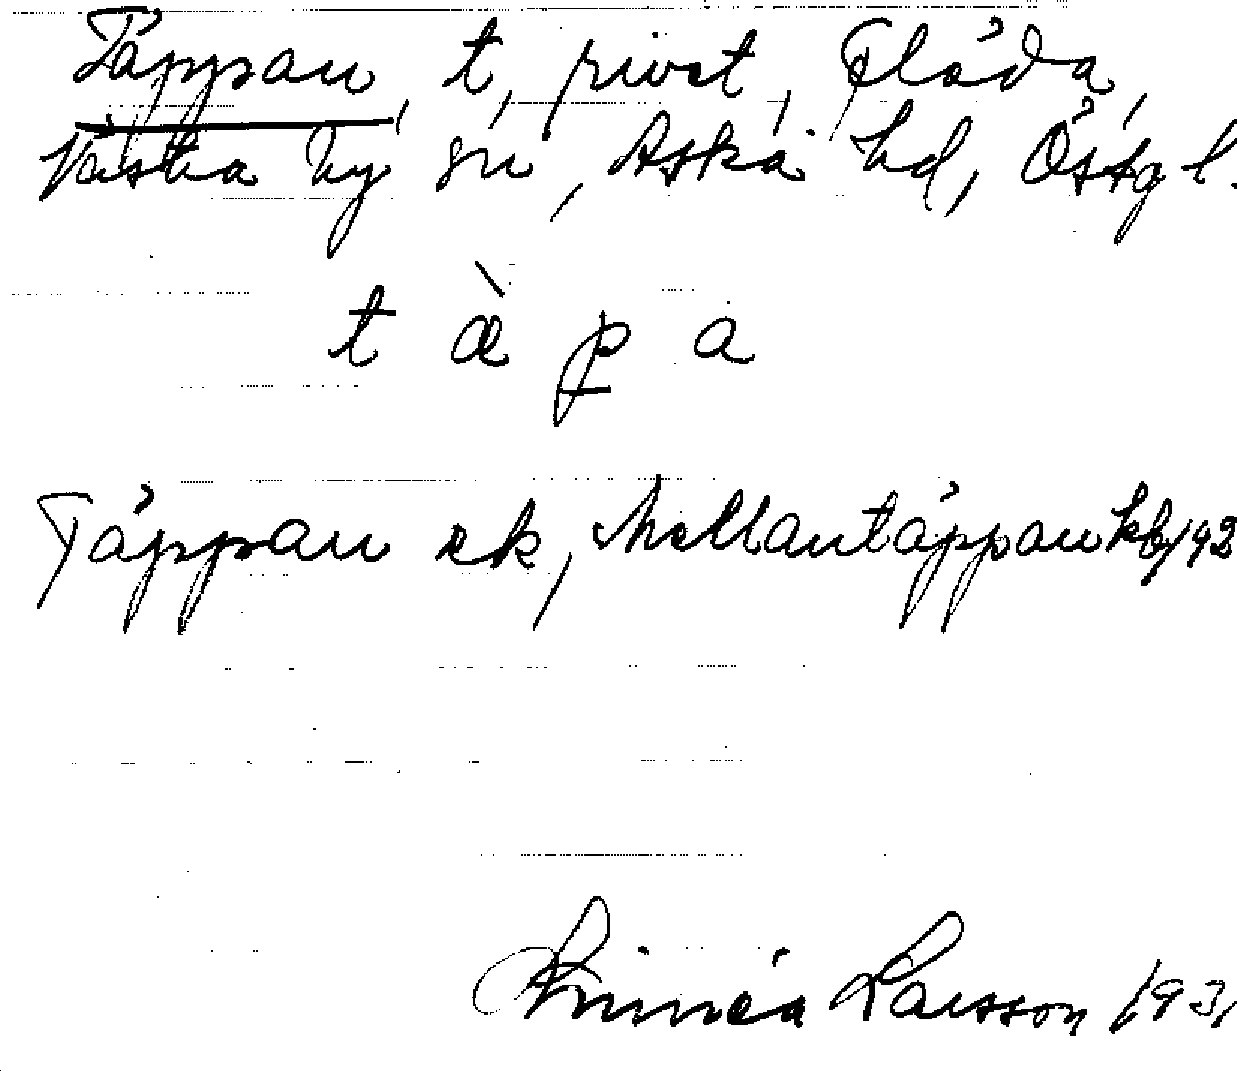 Täppan, t, rivet, Flåda,
Västra Ny sn, Aska hd, Östgl.
t æ̀ p a
Täppan ek, Mellantäppan kb/92
Linnéa Larsson 1931